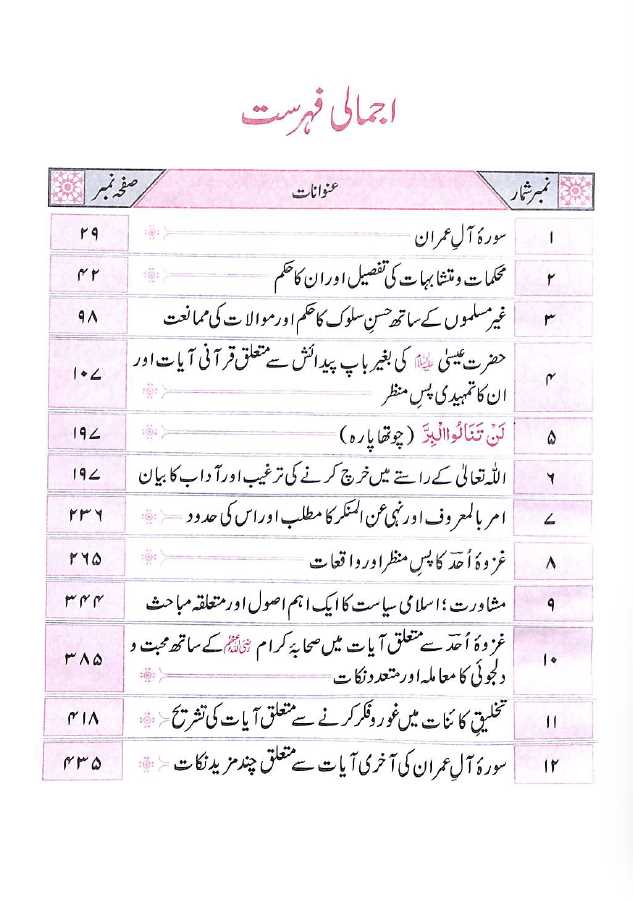 اجمالی فہرست
نمبر شمار عنوانات صفحہ نمبر
۱ سورۂ آلِ عمران ۲۹
۲ محکمات و متشابہات کی تفصیل اور ان کا حکم ۴۲
۳ غیر مسلموں کے ساتھ حسنِ سلوک کا حکم اور موالات کی ممانعت ۹۸
۴ حضرت عیسیٰ علیہ السلام کی بغیر باپ پیدائش سے متعلق قرآنی آیات اور ۱۰۷
ان کا تمہیدی پسِ منظر
۵ لَنْ تَنَالُوا الْبِرَّ (چوتھا پارہ) ۱۹۷
۶ اللہ تعالیٰ کے راستے میں خرچ کرنے کی ترغیب اور آداب کا بیان ۱۹۷
۷ امر بالمعروف اور نہی عن المنکر کا مطلب اور اس کی حدود ۲۳۶
۸ غزوۂ اُحد کا پسِ منظر اور واقعات ۲۶۵
۹ مشاورت؛ اسلامی سیاست کا ایک اہم اصول اور متعلقہ مباحث ۳۴۴
۱۰ غزوۂ اُحد سے متعلق آیات میں صحابۂ کرام رضی اللہ عنہم کے ساتھ محبت و ۳۸۵
دلجوئی کا معاملہ اور متعدد نکات
۱۱ تخلیقِ کائنات میں غور و فکر کرنے سے متعلق آیات کی تشریح ۴۱۸
۱۲ سورۂ آلِ عمران کی آخری آیات سے متعلق چند مزید نکات ۴۳۵